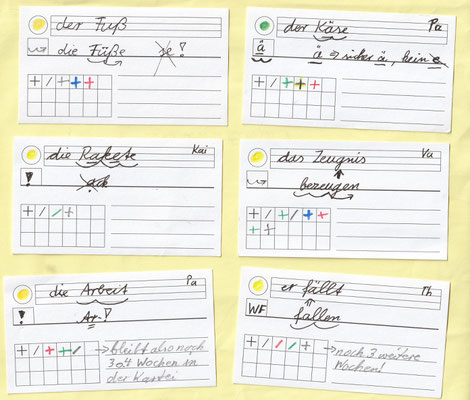 der Fuß
die Füße se!
+ / + + +
der Käse Pa
ä ä ⇒ sicher ä, kein e
+ / + + +
die Rakete Kai
!
+ / / +
das Zeugnis Va
bezeugen
+ / + / + +
+ +
die Arbeit Pa
! Ar-!
+ / + + /
→ bleibt also noch
3 o. 4 Wochen in
der Kartei
er fällt Th
WF fallen
+ / / / +
→ noch 3 weitere
Wochen!